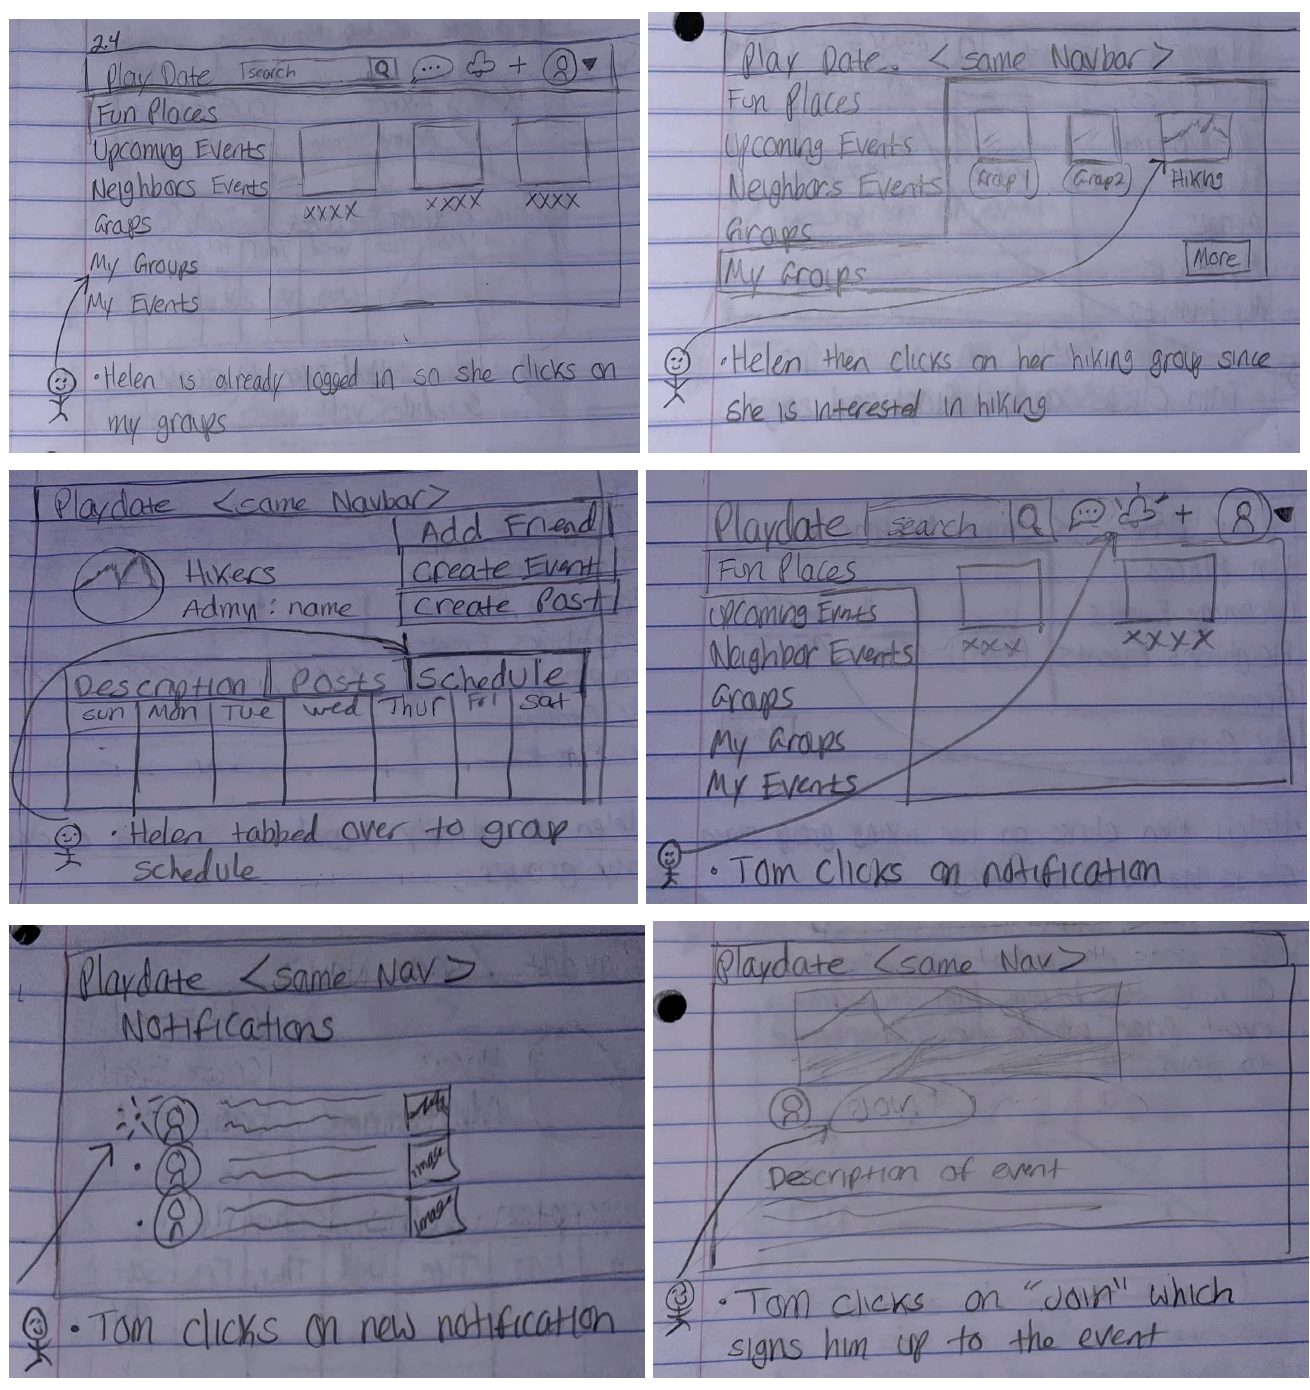 2.4
Play Date search
Fun Places
Upcoming Events
Neighbors Events
xxxx xxxx xxxx
Groups
My Groups
My Events
• Helen is already logged in so she clicks on
my groups
Play Date. <same Navbar>
Fun Places
Upcoming Events
Neighbors Events Group 1 Group 2 Hiking
Groups
My Groups More
• Helen then clicks on her hiking group since
she is interested in hiking
Playdate <same Navbar>
Add Friend
Hikers Create Event
Admn: name Create Post
Description Posts Schedule
Sun Mon Tue Wed Thur Fri Sat
• Helen tabbed over to group
schedule
Playdate search
Fun Places
Upcoming Events
Neighbor Events xxx xxxx
Groups
My Groups
My Events
• Tom clicks on notification
Playdate <same Nav>
Notifications
image
image
• Tom clicks on new notification
Playdate <same Nav>
Join
Description of event
• Tom clicks on "Join" which
signs him up to the event